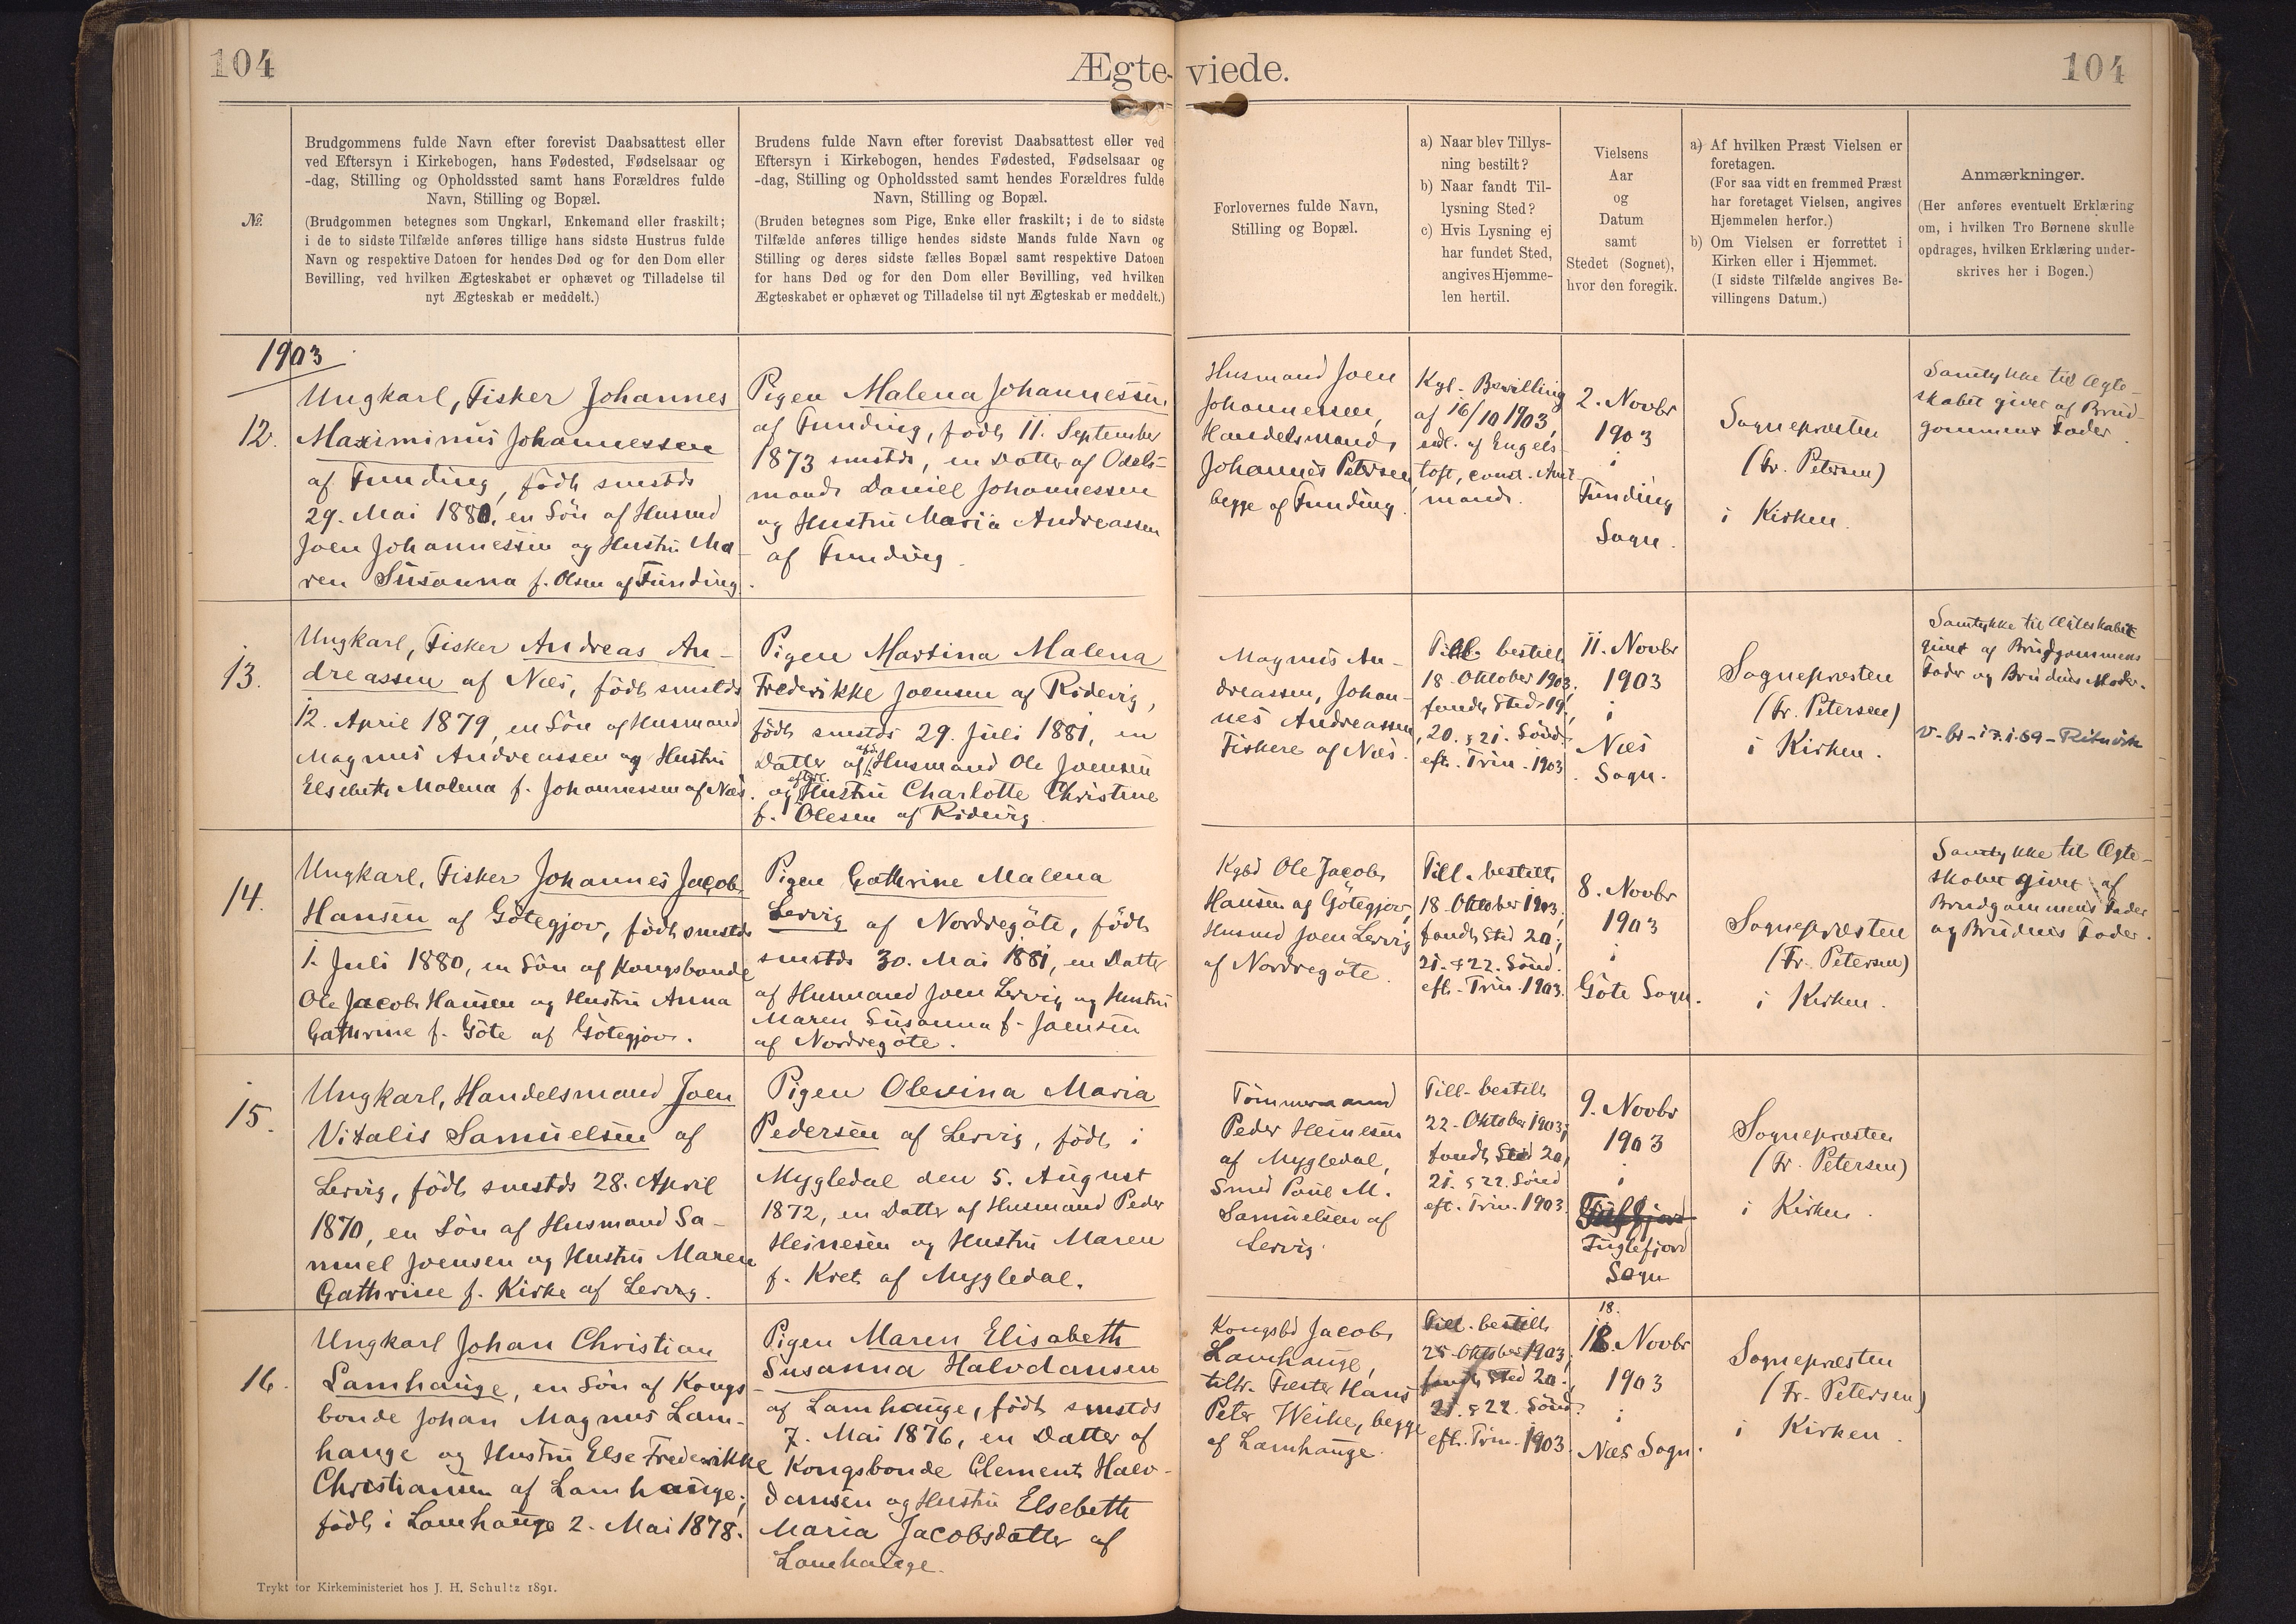 104
Ægte-viede.
104
№.
Brudgommens fulde Navn efter forevist Daabsattest eller
ved Eftersyn i Kirkebogen, hans Fødested, Fødselsaar og
-dag, Stilling og Opholdssted samt hans Forældres fulde
Navn, Stilling og Bopæl.
(Brudgommen betegnes som Ungkarl, Enkemand eller fraskilt;
i de to sidste Tilfælde anføres tillige hans sidste Hustrus fulde
Navn og respektive Datoen for hendes Død og for den Dom eller
Bevilling, ved hvilken Ægteskabet er ophævet og Tilladelse til
nyt Ægteskab er meddelt.)
Brudens fulde Navn efter forevist Daabsattest eller ved
Eftersyn i Kirkebogen, hendes Fødested, Fødselsaar og
-dag, Stilling og Opholdssted samt hendes Forældres fulde
Navn, Stilling og Bopæl.
(Bruden betegnes som Pige, Enke eller fraskilt; i de to sidste
Tilfælde anføres tillige hendes sidste Mands fulde Navn og
Stilling og deres sidste fælles Bopæl samt respektive Datoen
for hans Død og for den Dom eller Bevilling, ved hvilken
Ægteskabet er ophævet og Tilladelse til nyt Ægteskab er meddelt.)
Forlovernes fulde Navn,
Stilling og Bopæl.
a) Naar blev Tillys-
ning bestilt?
b) Naar fandt Til-
lysning Sted?
c) Hvis Lysning ej
har fundet Sted,
angives Hjemme-
len hertil.
Vielsens
Aar
og
Datum
samt
Stedet (Sognet),
hvor den foregik.
a) Af hvilken Præst Vielsen er
foretagen.
(For saa vidt en fremmed Præst
har foretaget Vielsen, angives
Hjemmelen herfor.)
b) Om Vielsen er forrettet i
Kirken eller i Hjemmet.
(I sidste Tilfælde angives Be-
villingens Datum.)
Anmærkninger.
(Her anføres eventuelt Erklæring
om, i hvilken Tro Børnene skulle
opdrages, hvilken Erklæring under-
skrives her i Bogen.)
1903
12.
Ungkarl, Fisker Johannes
Maximinus Johannessen
af Funding, født smstds
29. Mai 1880, en Sön af Husmd
Joen Johannessen og Hustru Ma-
ren Susanna f. Olsen af Funding.
Pigen Malena Johannessen
af Funding, født 11. September
1873 smstds, en Datter af Odels-
mand Daniel Johannessen
og Hustru Maria Andreassen
af Funding.
Husmand Joen
Johannessen,
Handelsmand
Johannes Petersen
begge af Funding.
Kgl. Bevilling
af 16/10 1903,
udl. af Engels-
toft, const. Amt-
mand.
2. Novbr
1903
i
Funding
Sogn.
Sognepræsten
(Fr. Petersen)
i Kirken.
Samtykke til Ægte-
skabet givet af Brud-
gommens Fader.
13.
Ungkarl, Fisker Andreas An-
dreassen af Næs, født smstds
12. April 1879, en Sön af Husmand
Magnus Andreassen og Hustru
Elsebeth Malena f. Johannessen af Næs.
Pigen Martina Malena
Frederikke Joensen af Ridevig,
født smstds 29. Juli 1881, en
Datter af afd. Husmand Ole Joensen
og efterl. Hustru Charlotte Christine
f. Olesen af Ridevig.
Magnus An-
dreassen, Johan-
nes Andreassen,
Fiskere af Næs.
Till. bestilt
18. Oktober 1903;
fandt Sted 19.,
20. & 21. Sönd.
eft. Trin. 1903.
11. Novbr
1903
i
Næs
Sogn.
Sognepræsten
(Fr. Petersen)
i Kirken.
Samtykke til Ægteskabet
givet af Brudgommens
Fader og Brudens Moder.
14.
Ungkarl, Fisker Johannes Jacob
Hansen af Götegjov, født smstds
1. Juli 1880, en Sön af Kongsbonde
Ole Jacob Hansen og Hustru Anna
Cathrine f. Göte af Götegjov.
Pigen Cathrine Malena
Lervig af Nordregöte, født
smstds 30. Mai 1881, en Datter
af Husmand Joen Lervig og Hustru
Maren Susanna f. Joensen
af Nordregöte.
Kgbd Ole Jacob
Hansen af Götegjov,
Husmd Joen Lervig
af Nordregöte.
Till. bestilt
18. Oktober 1903,
fandt Sted 20.,
21. & 22. Sönd.
eft. Trin. 1903.
8. Novbr
1903
i
Göte Sogn.
Sognepræsten
(Fr. Petersen)
i Kirken.
Samtykke til Ægte-
skabet givet af
Brudgommens Fader
og Brudens Fader.
15.
Ungkarl, Handelsmand Joen
Vitalis Samuelsen af
Lervig, født smstds 28. April
1870, en Sön af Husmand Sa-
muel Joensen og Hustru Maren
Cathrine f. Kirke af Lervig.
Pigen Olevina Maria
Pedersen af Lervig, født i
Mygledal den 5. August
1872, en Datter af Husmand Peder
Heinesen og Hustru Maren
f. Kret af Mygledal.
Tömmermand
Peder Heinesen
af Mygledal,
Smed Poul M.
Samuelsen af
Lervig.
Till. bestilt
22. Oktober 1903;
fandt Sted 20,
21. & 22. Sönd
eft. Trin. 1903.
9. Novbr
1903
i
Fuglefjord
Sogn
Sognepræsten
(Fr. Petersen)
i Kirken.
16.
Ungkarl Johan Christian
Lamhauge, en Sön af Kongs-
bonde Johan Magnus Lam-
hauge og Hustru Else Frederikke
Christiansen af Lamhauge;
født i Lamhauge 2. Mai 1878.
Pigen Maren Elisabeth
Susanna Halvdansen
af Lamhauge, født smstds
7. Mai 1876, en Datter af
Kongsbonde Clement Halv-
dansen og Hustru Elsebeth
Maria Jacobsdatter af
Lamhauge.
Kongsbd Jacob
Lamhauge,
tiltr. Fæster Hans
Peter Weihe, begge
af Lamhauge.
Till. bestilt
25. Oktober 1903;
fandt Sted 20.,
21. & 22. Sönd.
eft. Trin. 1903.
18.
18. Novbr
1903
i
Næs Sogn.
Sognepræsten
(Fr. Petersen)
i Kirken.
Trykt for Kirkeministeriet hos J. H. Schultz 1891.